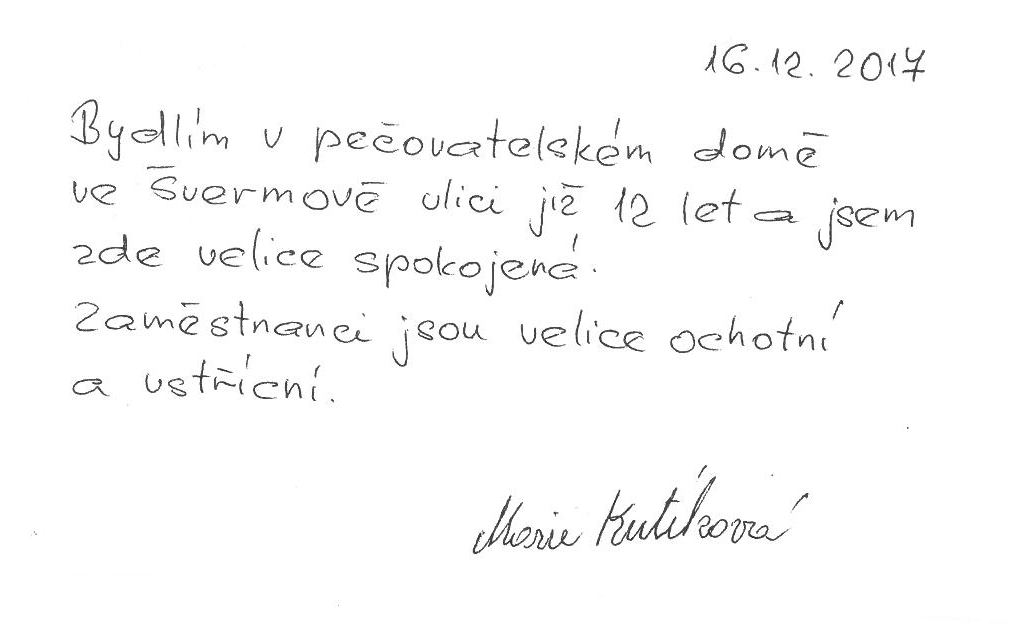 16.12. 2017
Bydlím v pečovatelském domě
ve Švermově ulici již 12 let a jsem
zde velice spokojená.
Zaměstnanci jsou velice ochotní
a vstřícní.
Marie Kutíková